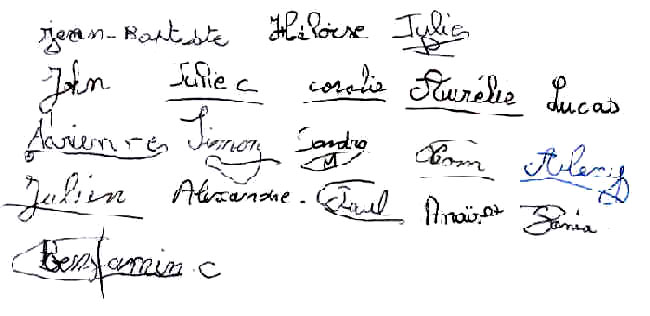 Jean-Baptiste Héloïse Julie
John Julie C coralie Aurélie Lucas
Adrien re Simon Sandra Tom Alexis
Julien Alexandre. Paul Anaïs M Dania
Benjamin.C